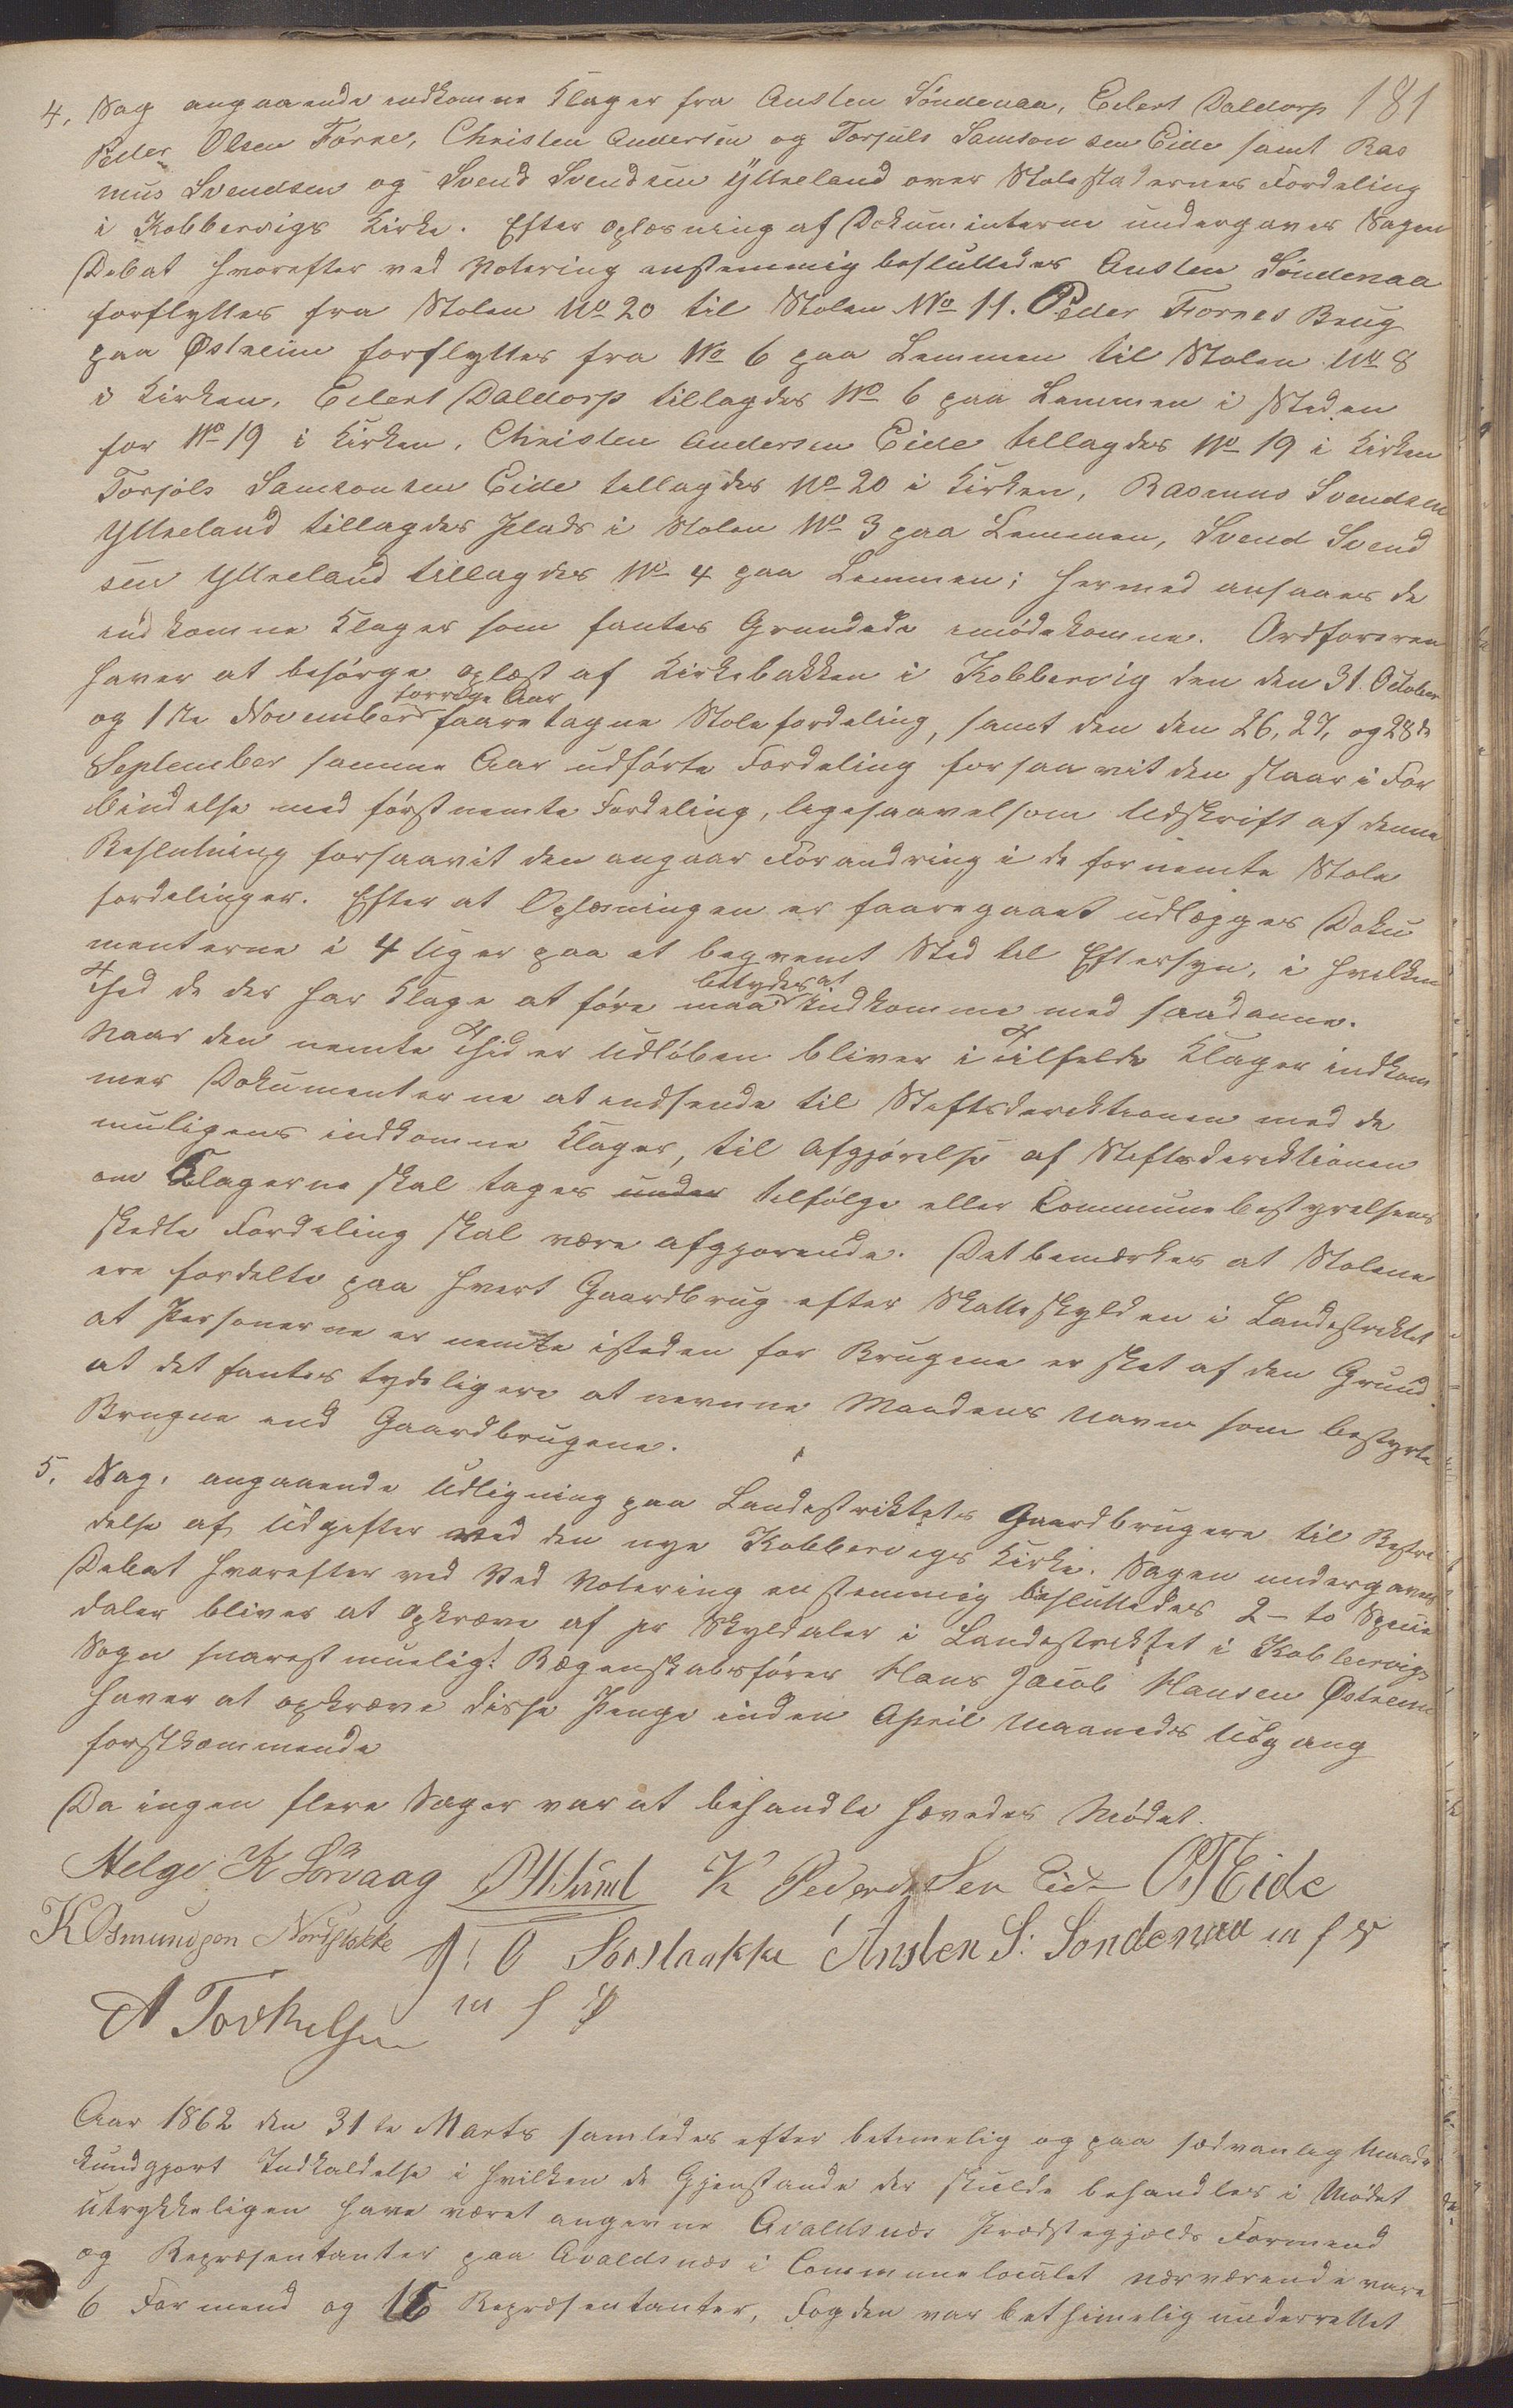 181
4, Sag angaaende indkomne Klager fra Austen Søndenaa, Eilert Daldorp
Peder Olsen Førre, Christen Andersen og Torjuls Samsonsen Eide samt Ras
mus Svendsen og Svend Svendsen Yttreland over Stolestadernes Fordeling
i Kobbervigs Kirke. Efter Oplæsning af Dokumenterne undergaves Sagen
Debat hvorefter ved Votering enstemmig besluttedes Austen Søndenaa
forflyttes fra Stolen No 20 til Stolen No 11. Peder Førres Brug
paa Østreim forflyttes fra No 6 paa Lemmen til Stolen No 8
i Kirken, Eilert Daldorp tillagdes No 6 paa Lemmen i Steden
for No 19 i Kirken, Christen Andersen Eide tillagdes No 19 i Kirken
Torjols Samsonsen Eide tillagdes No 20 i Kirken, Rasmus Svendsen
Yttreland tillagdes Plads i Stolen No 3 paa Lemmen, Svend Svend
sen Yttreland tillagdes No 4 paa Lemmen; hermed ansaaes de
indkomne Klager som fantes Grundede imødekomne. Ordføreren
haver at besørge oplæst af Kirkebakken i Kobbervig den den 31. October
og 1ste November forrige Aar faaretagne Stolefordeling, samt den den 26, 27, og 28de
September samme Aar udførte Fordeling forsaavit den staar i For
bindelse med førstnemte Fordeling, ligesaavelsom Udskrift af denne
Beslutning forsaavit den angaar Forandring i de fornemte Stole
fordelinger. Efter at Oplæsningen er faaregaaet udlægges Doku
menterne i 4 Uger paa et beqvemt Sted til Eftersyn, i hvilken
Thid de der har Klage at føre maa betydes at Indkomme med saadanne.
Naar den nemte Thid er Udløben bliver i Tilfelde Klager indkom
mer Dokumenterne at indsende til Stiftsdirektionen med de
muligens indkomne Klager, til Afgjørelse af Stiftsdirektionen
om Klagerne skal tages under tilfølge eller Communebestyrelsens
skedte Fordeling skal være afgjorende. Det bemærkes at Stolene
ere fordelte paa hvert Gaardbrug efter Skatteskylden i Landestriktet
at Personerne er nemte isteden for Brugene er sket af den Grund
at det fantes tydeligere at nevnne Mandens Navn som bestyrte
Brugne end Gaardbrugene.
5. Sag, angaaende Udligning paa Landestriktets Gaardbrugere til Bestri
delse af Udgifter ved den nye Kobbervigs Kirke. Sagen undergaves
Debat hvorefter ved Ved Votering enstemmig besluttedes 2 - to Specie
daler bliver at Opkræve af pr Skyldaler i Landestriktet i Kobbervigs
Sogn snarest muelig. Rægenskabsfører Hans Jacob Hansen Østreim
haver at opkræve disse Penge inden April Maaneds Udgang
forstkommende
Da ingen flere Sager var at behandle hævedes Mødet.
Helge K Sørvaag K Pedersen Eide O T Eide
K Osmundson Nordstokke J. O Sørstaakke Austen S. Søndenaa m f P
A Torkelsen m f P
Aar 1862 den 31te Marts samledes efter betimelig og paa sedvanlig Maade
kundgjort Indkaldelse i hvilken de Gjenstande der skulde behandles i Mødet
utrykkeligen have været angivne Avaldsnæs Prædstegjelds Formend
og Repræsentanter paa Avaldsnæs i Communelocalet nærværende vare
6 Formend og 16 Repræsentanter, Fogden var bethimelig underrettet